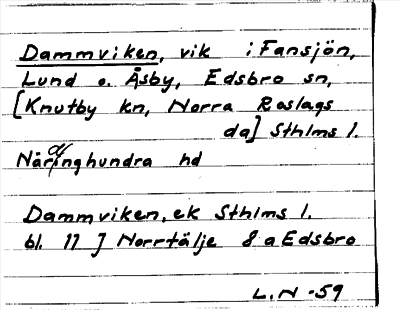 Dammviken, vik i Fansjön,
Lund o. Åsby, Edsbro sn,
[Knutby kn, Norra Roslags
da] Sthlms l.
Närdinghundra hd
Dammviken, ek Sthlms l.
bl. 11 J Norrtälje 8 a Edsbro
L.N -59